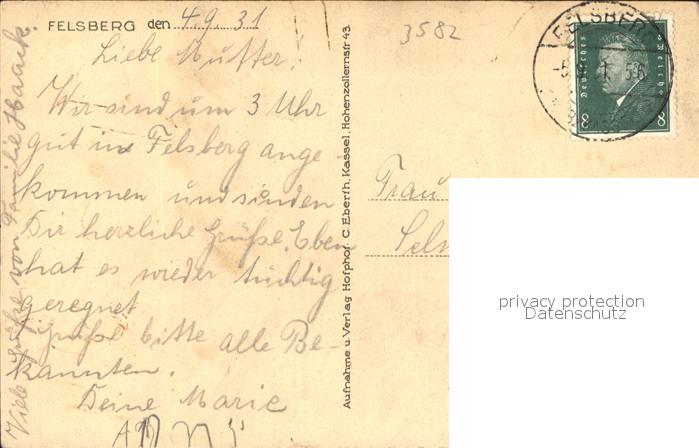 FELSBERG den 4.9.31
3582
Liebe Mutter.
Wir sind um 3 Uhr
gut in Felsberg ange
kommen und sinden
Dir herzliche Grüße. Eben
hat es wieder tüchtig
geregnet
Grüße bitte alle Be-
kannten.
Deine Marie
Viele Grüße von Familie Haack.
Aufnahme u. Verlag Hofphot. C. Eberth, Kassel, Hohenzollernstr 43.
FELSBERG
Deutsches Reich
8 8
Frau
privacy protection
Datenschutz